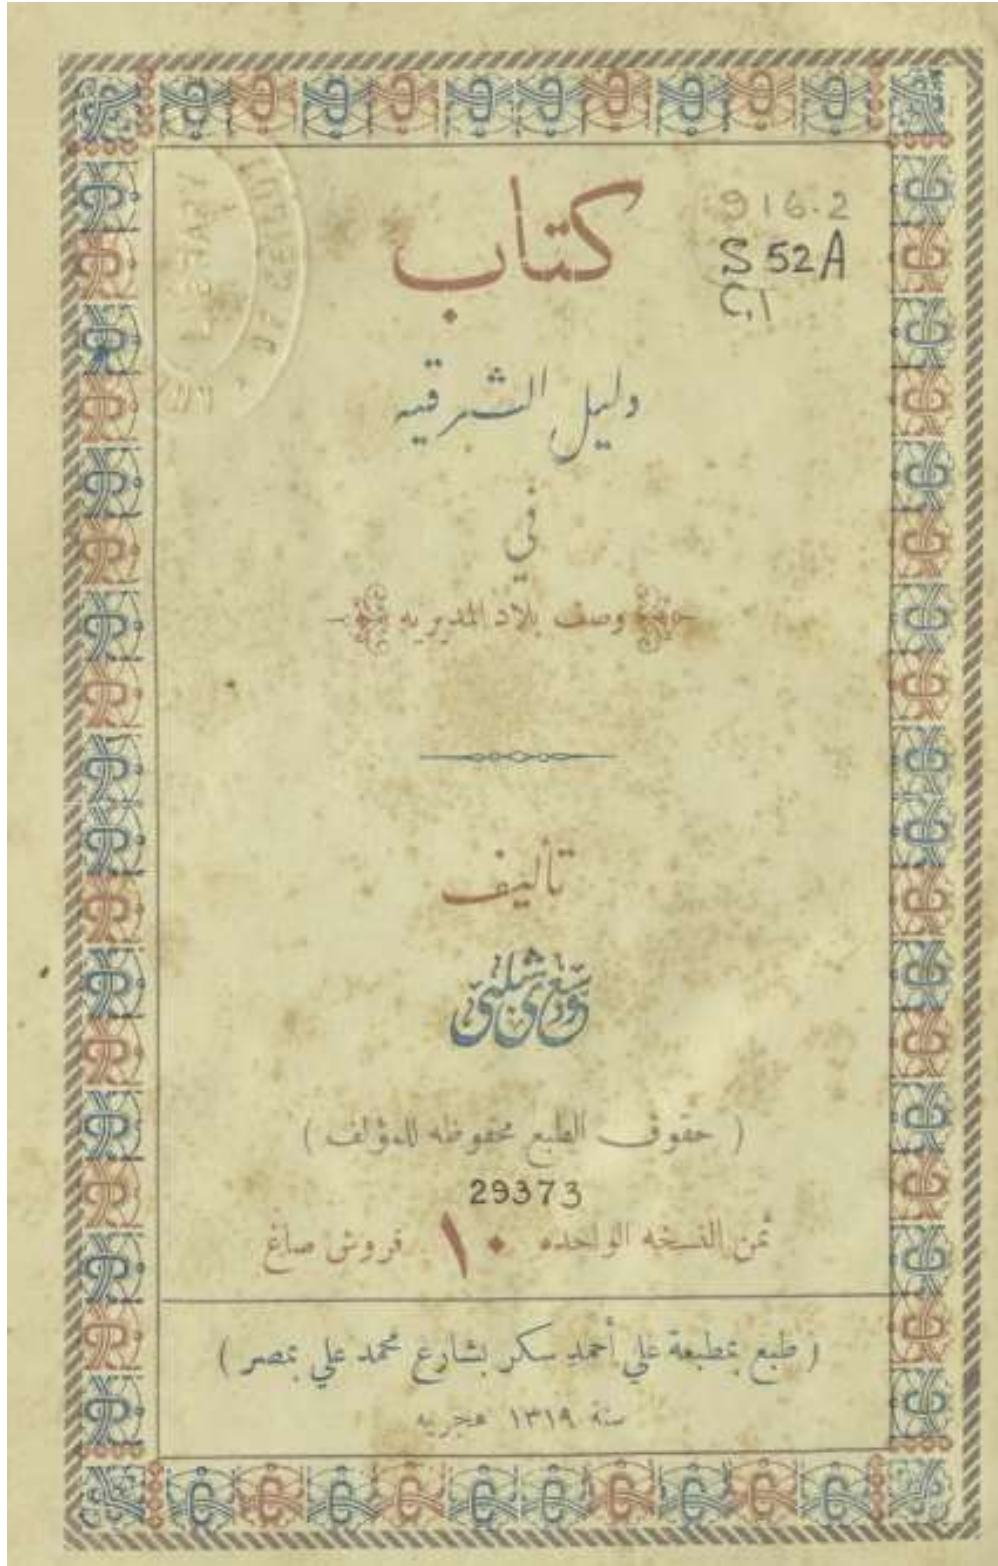 كتاب
916.2
S 52A
C1
دليل الشرقيه
في
وصف بلاد المديريه
تأليف
شلبي
( حقوق الطبع محفوظه للمؤلف )
29373
ثمن النسخه الواحده ١٠ قروش صاغ
( طبع بمطبعة علي أحمد سكر بشارع محمد علي بمصر )
سنة ١٣١٩ هجريه